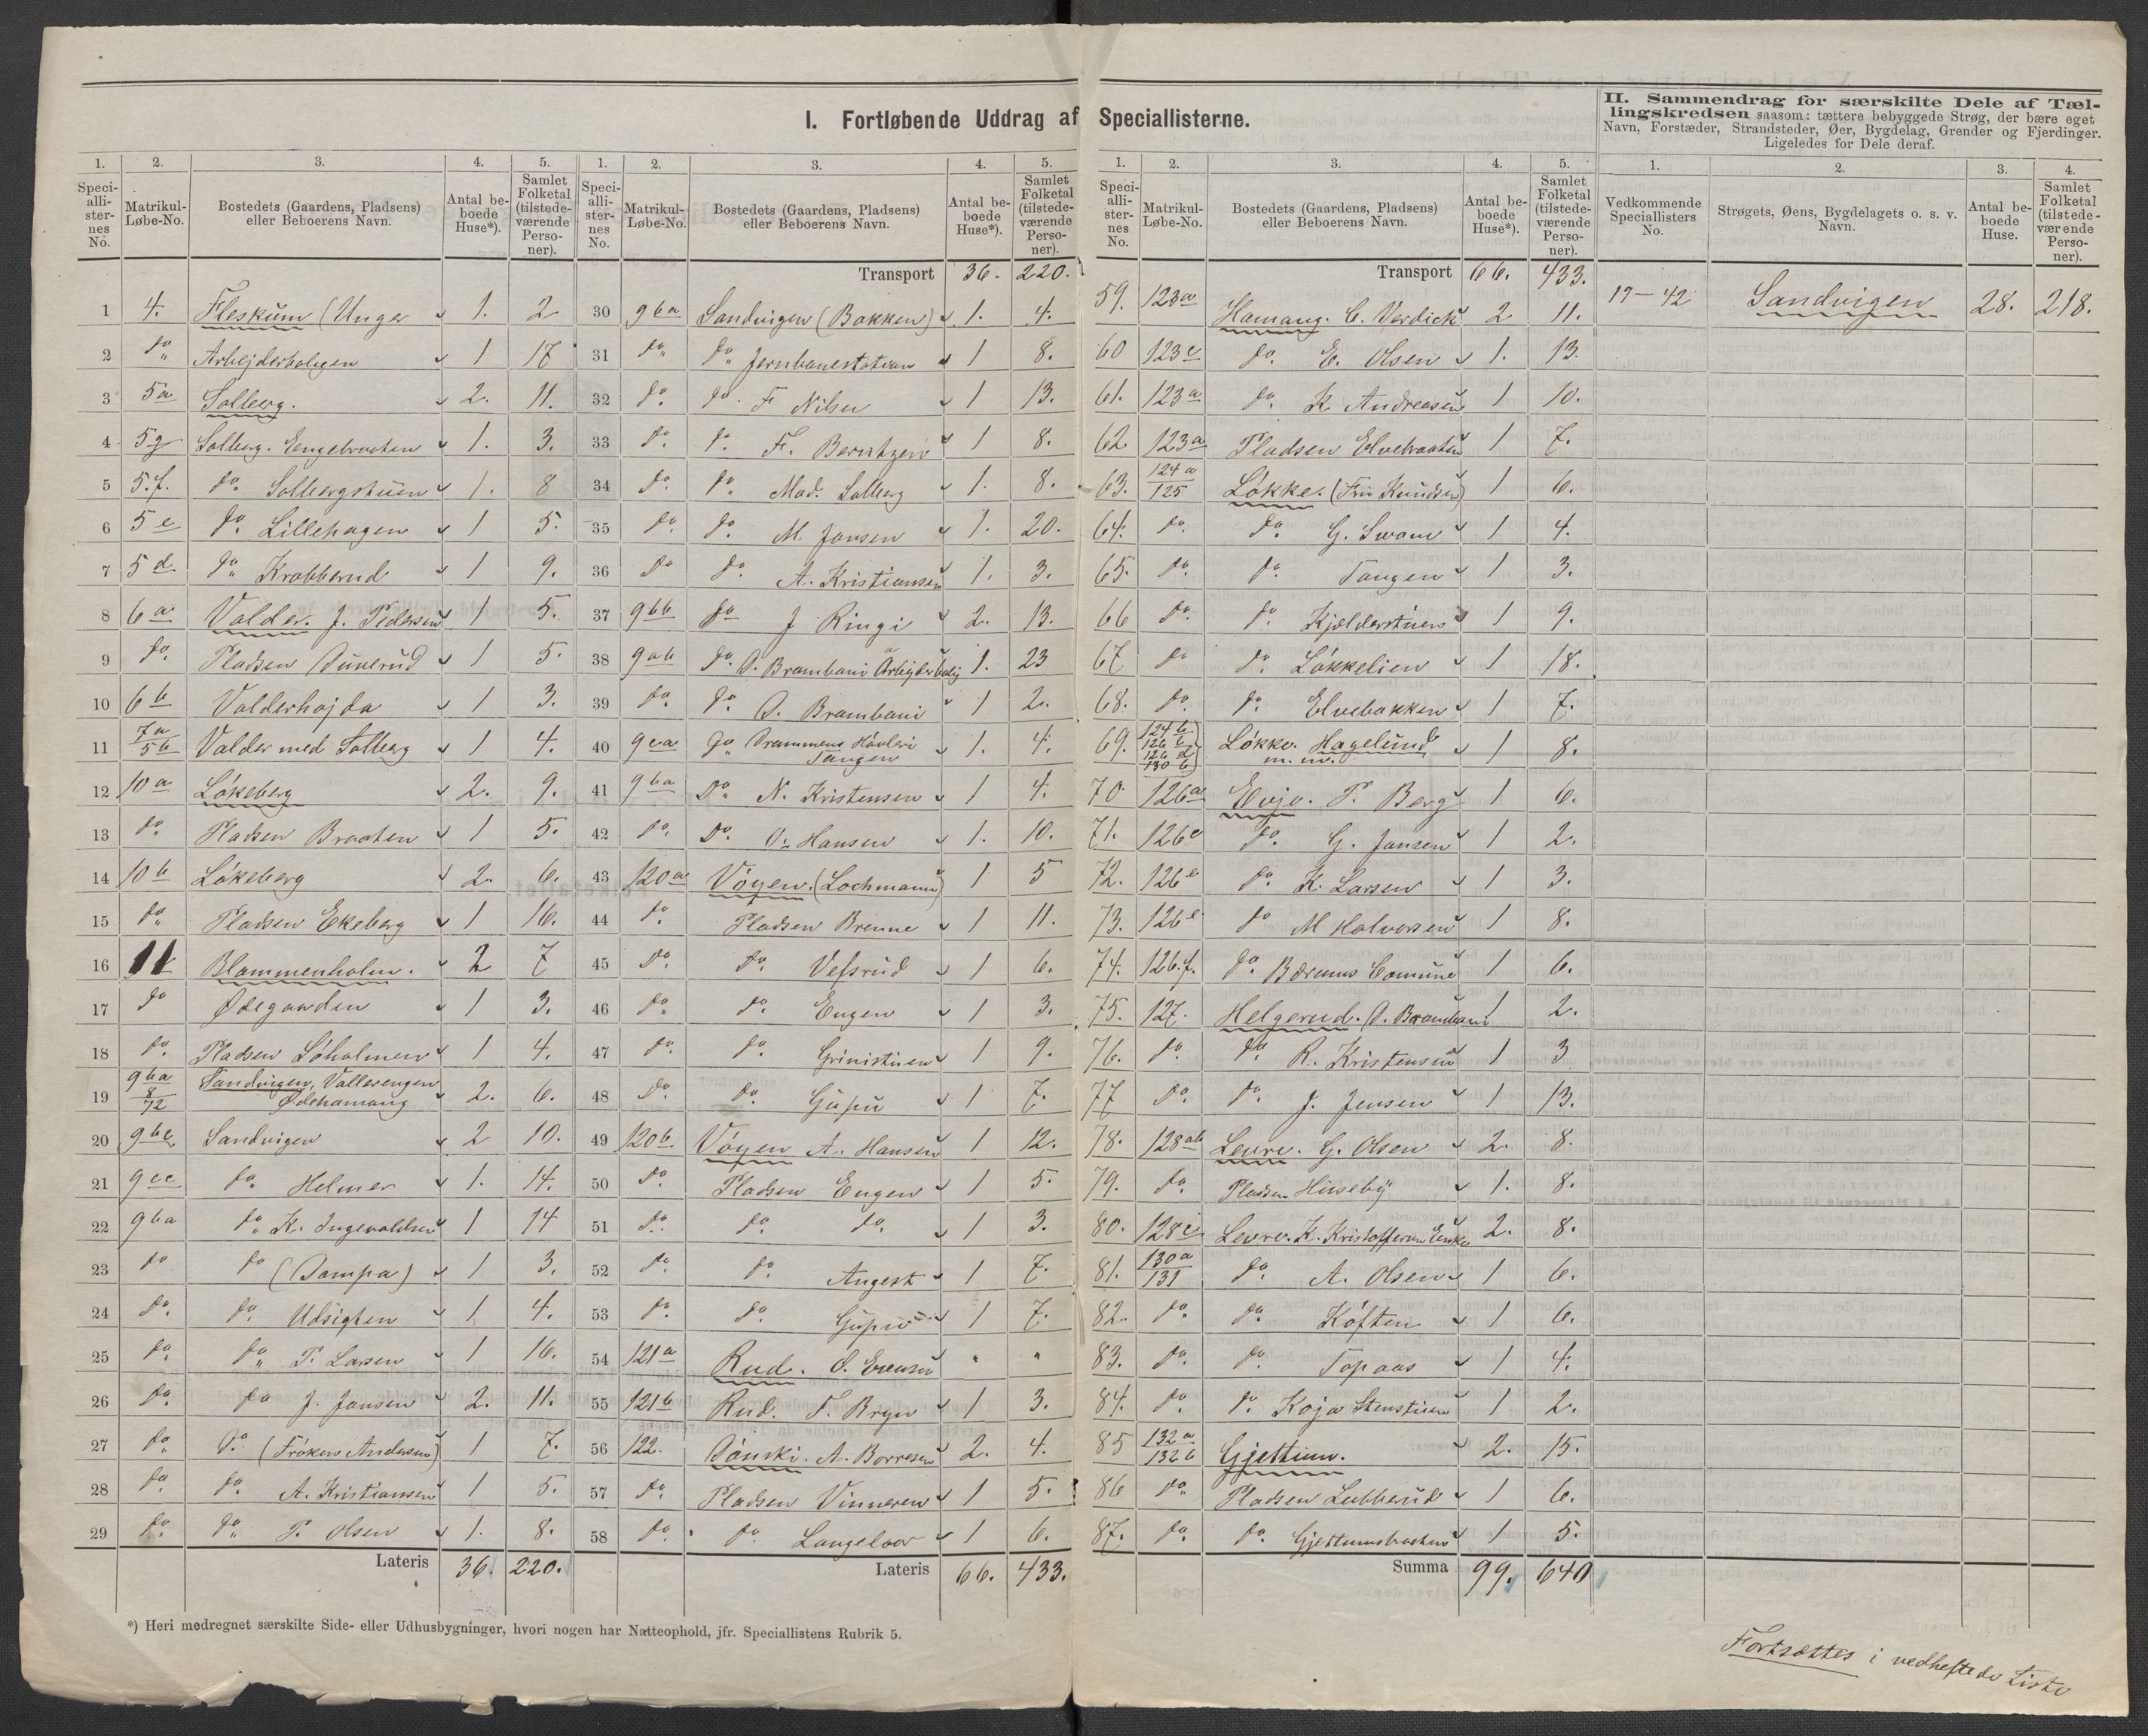 I. Fortløbende Uddrag af Speciallisterne.
II. Sammendrag for særskilte Dele af Tæl-
lingskredsen saasom: tættere bebyggede Strøg, der bære eget
Navn, Forstæder, Strandsteder, Øer, Bygdelag, Grender og Fjerdinger.
Ligeledes for Dele deraf.
1. 2. 3. 4. 5.
Speci-alli-ster-nes No. Matrikul-Løbe-No. Bostedets (Gaardens, Pladsens) eller Beboerens Navn. Antal be-boede Huse*). Samlet Folketal (tilstede-værende Perso-ner).
1 4. Fleskum (Unger 1. 2
2 do. Arbejderboligen 1 17
3 5a Solberg. 2. 11.
4 5g Solberg. Engebraaten 1. 3.
5 5.f. do. Solbergstuen 1. 8
6 5e do. Lillehagen 1 5.
7 5d do. Krabberud 1 9.
8 6a Valder. J. Pedersen 1 5.
9 do. Pladsen Dunerud 1 5.
10 6b Valderhøjda 1 3.
11 7a 5b Valder med Solberg 1 4.
12 10a Løkeberg 2. 9.
13 do. Pladsen Braaten 1 5.
14 10b Løkeberg 2. 6.
15 do. Pladsen Ekeberg 1 16.
16 11 Blommenholm. 2 7
17 do Ødegaarden 1 3.
18 do. Pladsen Løholmen 1 4.
19 9ba 8 72 Sandvigen, Vallerengen Ødehamang 2. 6.
20 9bc. Sandvigen 2 10.
21 9cc do. Helmer 1. 14.
22 9ba do. K. Ingevaldsen 1 14
23 do do (Dampa) 1 3.
24 do. do. Udsigten 1 4.
25 do. do. P. Larsen 1 16.
26 do. do J. Jansen 2. 11.
27 do. do. (Frøken Andersen) 1 7.
28 do. do. A. Kristiansen 1 5.
29 do. do. P. Olsen 1. 8.
Lateris 36. 220.
1. 2. 3. 4. 5.
Speci-alli-ster-nes No. Matrikul-Løbe-No. Bostedets (Gaardens, Pladsens) eller Beboerens Navn. Antal be-boede Huse*). Samlet Folketal (tilstede-værende Perso-ner).
Transport 36. 220.
30 9ba Sandvigen (Bakken) 1. 4.
31 do. do. Jernbanestation 1 8.
32 do. do. F Nilsen 1 13.
33 do. do. F. Berntzen 1 8.
34 do. do. Mad. Solberg 1. 8.
35 do. do. M. Jansen 1. 20.
36 do do. A. Kristiansen 1. 3.
37 9bb do J Ringi 2. 13.
38 9ab do. O. Brambani Arbejderbolig 1. 23
39 do. do. O. Brambani 1 2.
40 9ca do. Drammens Høvleri Tangen 1. 4.
41 9ba Do. N. Kristensen 1 4.
42 do. Do. O. Hansen 1. 10.
43 120a Vøyen. (Lochmann) 1 5
44 do. Pladsen Brenne 1 11.
45 do. do. Vefsrud 1 6.
46 do. do. Engen 1 3.
47 do. do. Grinistuen 1 9.
48 do. do. Gupu 1 7.
49 120b. Vøyen A. Hansen 1 12.
50 do. Pladsen Engen 1 5.
51 do. do. do. 1 3.
52 do. do. Angest 1 7.
53 do. do. Gupu 1 7.
54 121a Rud. O. Evensen " "
55 121b Rud. T. Bryn 1 3.
56 122. Dønski. A. Borresen 2. 4.
57 do. Pladsen Vinneren 1 5.
58 do. do. Langeloor 1 6.
Lateris 66. 433.
1. 2. 3. 4. 5.
Speci-alli-ster-nes No. Matrikul-Løbe-No. Bostedets (Gaardens, Pladsens) eller Beboerens Navn. Antal be-boede Huse*). Samlet Folketal (tilstede-værende Perso-ner).
Transport 66. 433.
59. 123a Hamang. C. Verdick 2 11.
60 123c do. E. Olsen 1. 13.
61. 123a do. K. Andreasen 1 10.
62. 123a Pladsen Elvebraaten 1 7.
63. 124a 125 Løkke. (Fru Knudsen) 1 6.
64. do. do. G. Svane 1 4.
65. do. do. Tangen 1 3.
66 do. do. Kjelderstuen 1 9.
67 do do. Løkkelien 1 18.
68. do. do. Elvebakken 1 7.
69. 124b. 126b 126d 130b Løkke. Hagelund m. m. 1 8.
70. 126a Evje. P. Berg 1 6.
71. 126c do. G. Jansen 1 2.
72. 126e do. K. Larsen 1 3.
73. 126e do M Halvorsen 1 8.
74. 126.f. do. Bærums Comune 1 6.
75. 127. Helgerud. O. Brambani 1 2.
76. do. do. R. Kristensen 1 3
77 do. do. J. Jensen 1 13.
78. 128ab Levre. G. Olsen 2. 8.
79. do. Pladsen Huseby 1. 8.
80. 128c Levre. K. Kristoffersen Enke 2. 8.
81. 130a 131 do. A. Olsen 1 6.
82. do. do. Køften 1 6.
83. do. do. Topaas 1 4.
84. do. do. Koja Stenstuen 1 2.
85 132a 132b Gjettum. 2. 15.
86 do. Pladsen Lubberud 1 6.
87. do. do. Gjettumsbraaten 1 5.
Summa 99. 640
1. 2. 3. 4.
Vedkommende Speciallisters No. Strøgets, Øens, Bygdelagets o. s. v. Navn. Antal be-boede Huse. Samlet Folketal (tilstede-værende Perso-ner).
19-42 Sandvigen 28. 218.
*) Heri medregnet særskilte Side- eller Udhusbygninger, hvori nogen har Natteophold, jfr. Speciallistens Rubrik 5.
Fortsættes i vedheftede Liste